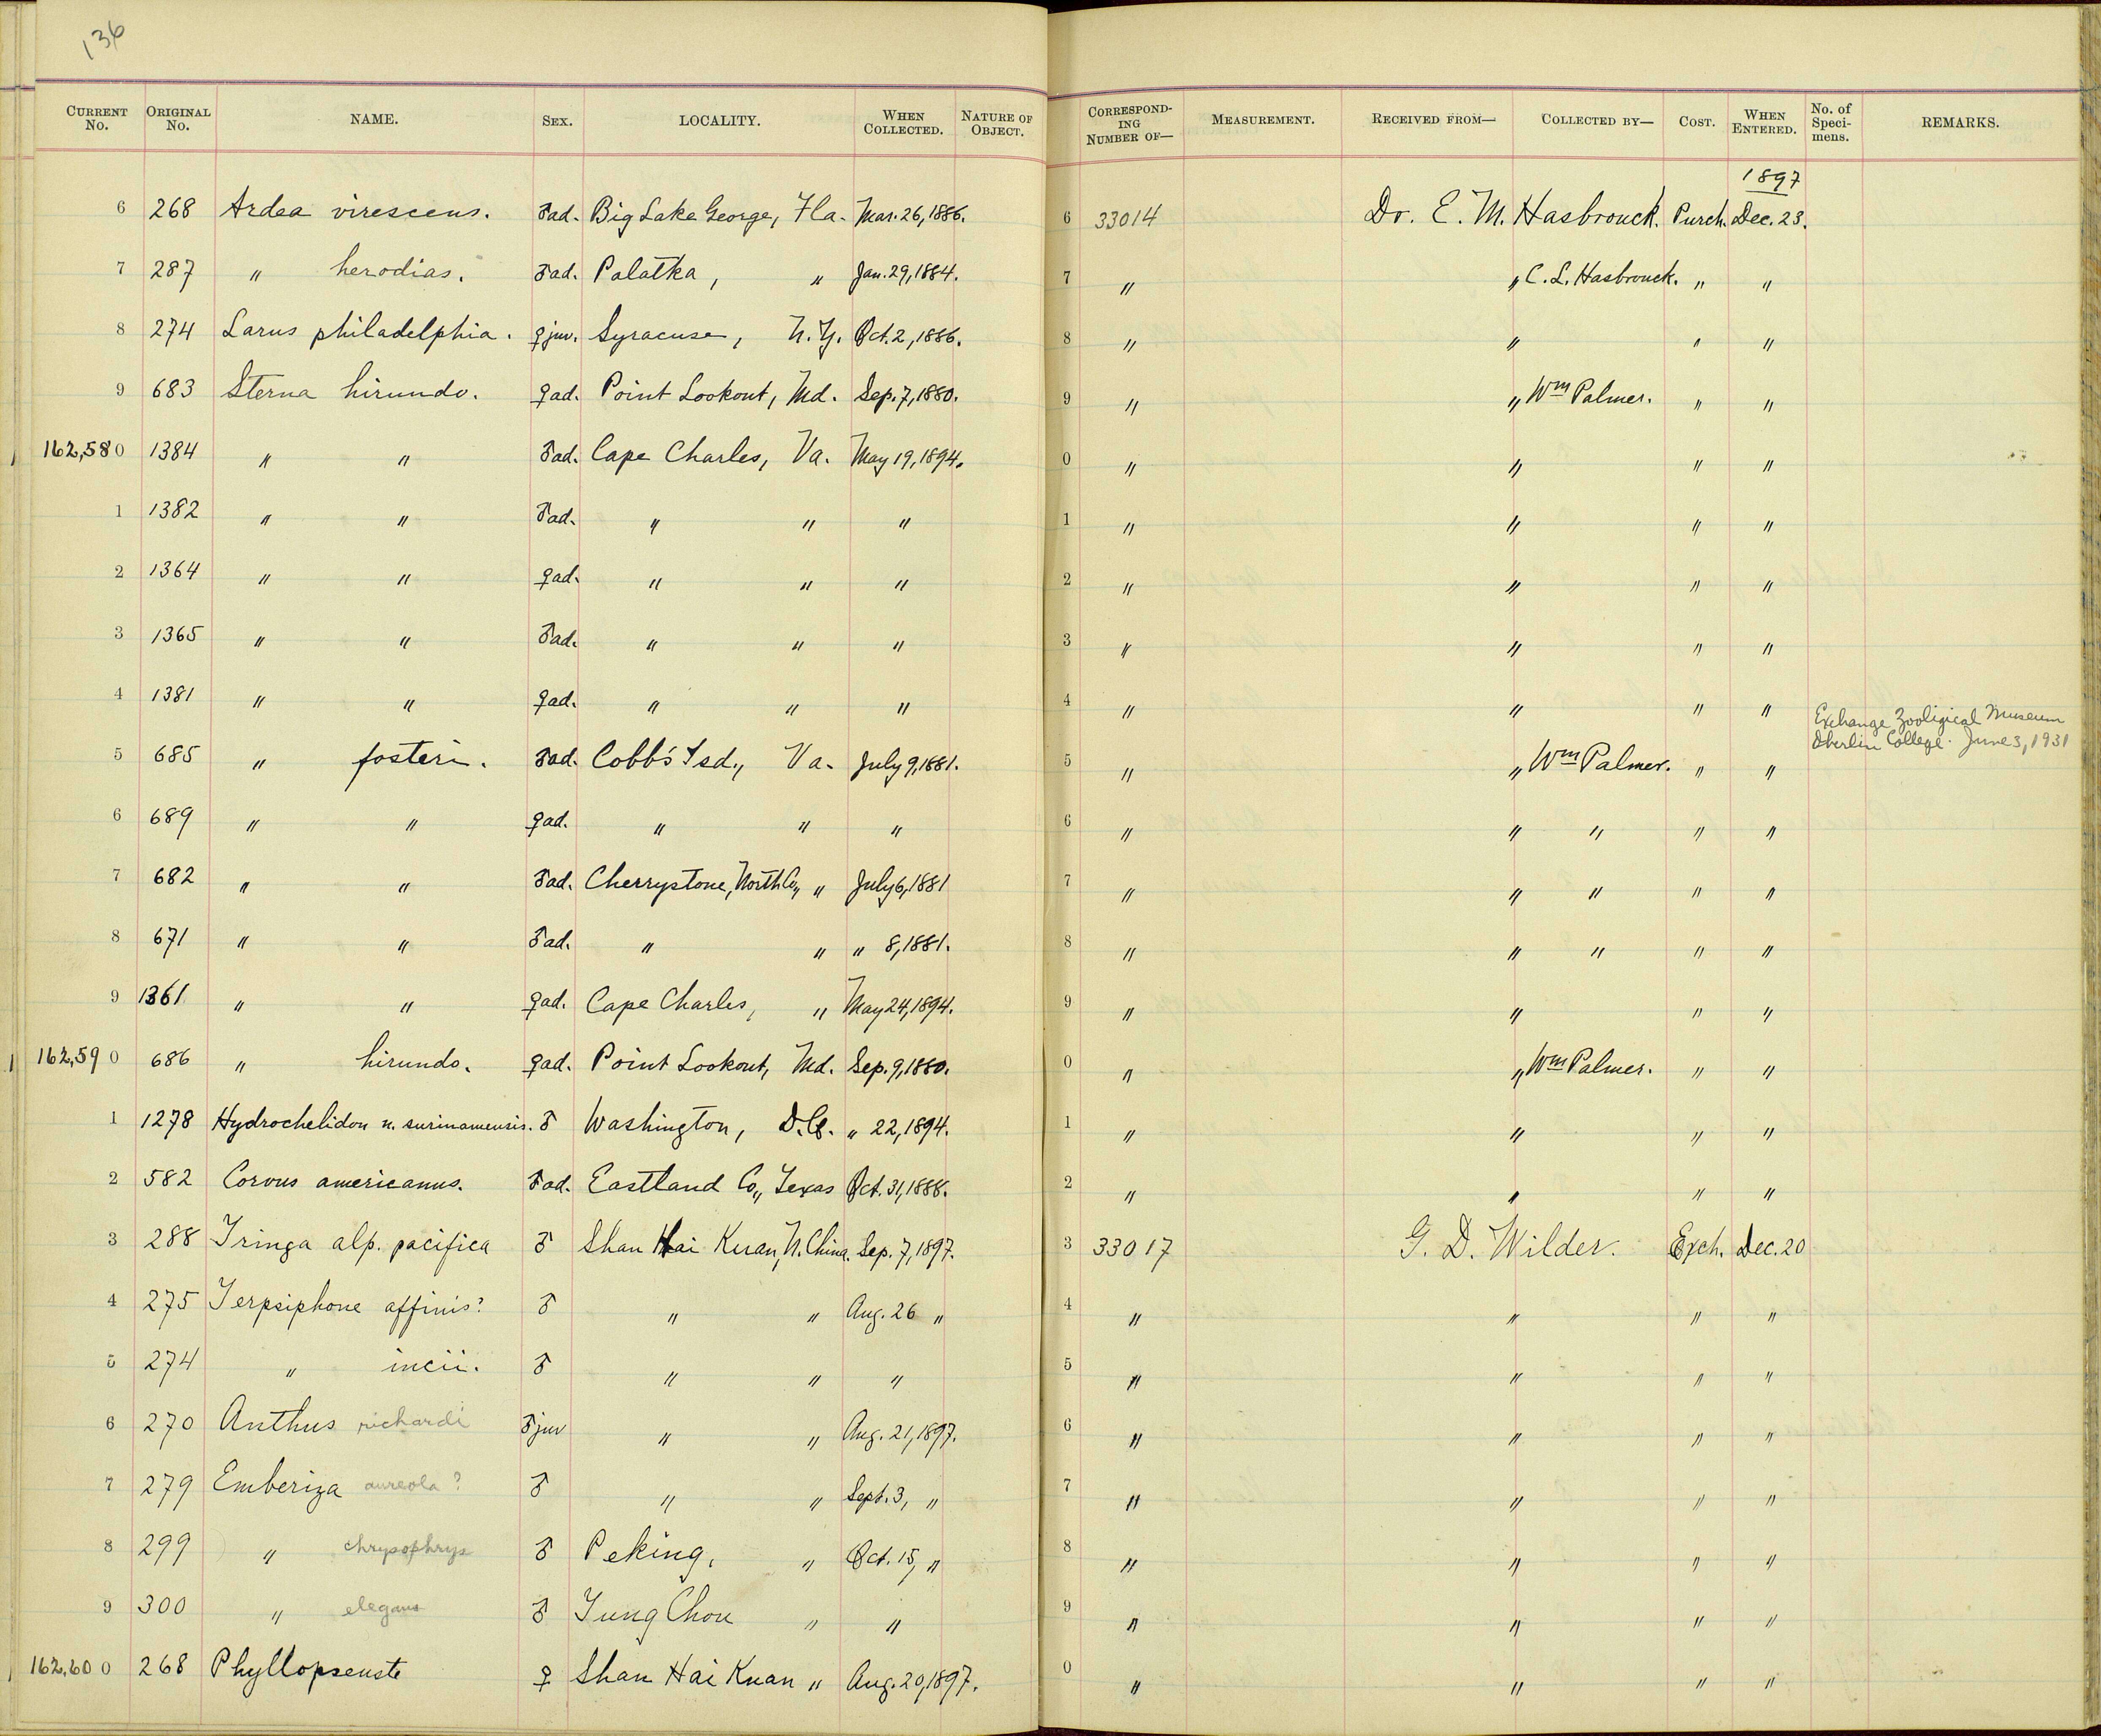 136
CURRENT No. ORIGINAL No. NAME. SEX. LOCALITY. WHEN COLLECTED. NATURE OF OBJECT. CORRESPOND-ING NUMBER OF— MEASUREMENT. RECEIVED FROM— COLLECTED BY— COST. WHEN ENTERED. No. of Speci-mens. REMARKS.
1897
6 268 Ardea virescens. ♂ad. Big Lake George, Fla. Mar. 26, 1886. 6 33014 Dr. E. M. Hasbrouck. Purch. Dec. 23.
7 287 " herodias. ♂ad. Palatka, " Jan. 29, 1884. 7 " " C. L. Hasbrouck. " "
8 274 Larus philadelphia. ♀juv. Syracuse, N. Y. Oct. 2, 1886. 8 " " " "
9 683 Sterna hirundo. ♀ad. Point Lookout, Md. Sep. 7, 1880. 9 " " Wm Palmer. " "
162,580 1384 " " ♂ad. Cape Charles, Va. May 19, 1894. 0 " " " "
1 1382 " " ♂ad. " " " 1 " " " "
2 1364 " " ♀ad. " " " 2 " " " "
3 1365 " " ♂ad. " " " 3 " " " "
4 1381 " " ♀ad. " " " 4 " " " " Exchange Zooligical Museum
Oberlin College. June 3, 1931
5 685 " fosteri. ♂ad. Cobb's Isd., Va. July 9, 1881. 5 " " Wm Palmer. " "
6 689 " " ♀ad. " " " 6 " " " " "
7 682 " " ♂ad. Cherrystone, North Co., " July 6, 1881 7 " " " " "
8 671 " " ♂ad. " " " 8, 1881. 8 " " " " "
9 1361 " " ♀ad. Cape Charles, " May 24, 1894. 9 " " " "
162,590 686 " hirundo. ♀ad. Point Lookout, Md. Sep. 9, 1880. 0 " " Wm Palmer. " "
1 1278 Hydrochelidon n. surinamensis. ♂ Washington, D.C. " 22, 1894. 1 " " " "
2 582 Corvus americanus. ♂ad. Eastland Co., Texas Oct. 31, 1888. 2 " " " "
3 288 Tringa alp. pacifica ♂ Shan Hai Kuan, N. China. Sep. 7, 1897. 3 33017 G. D. Wilder. Exch. Dec. 20
4 275 Terpsiphone affinis? ♂ " " Aug. 26 " 4 " " " "
5 274 " incii. ♂ " " " 5 " " " "
6 270 Anthus richardi ♂juv " " Aug. 21, 1897. 6 " " " "
7 279 Emberiza aureola? ♂ " " Sept. 3, " 7 " " " "
8 299 " chrysophrys ♂ Peking, " Oct. 15, " 8 " " " "
9 300 " elegans ♂ Tung Chou " " 9 " " " "
162,600 268 Phyllopseuste ♀ Shan Hai Kuan " Aug. 20, 1897. 0 " " " "